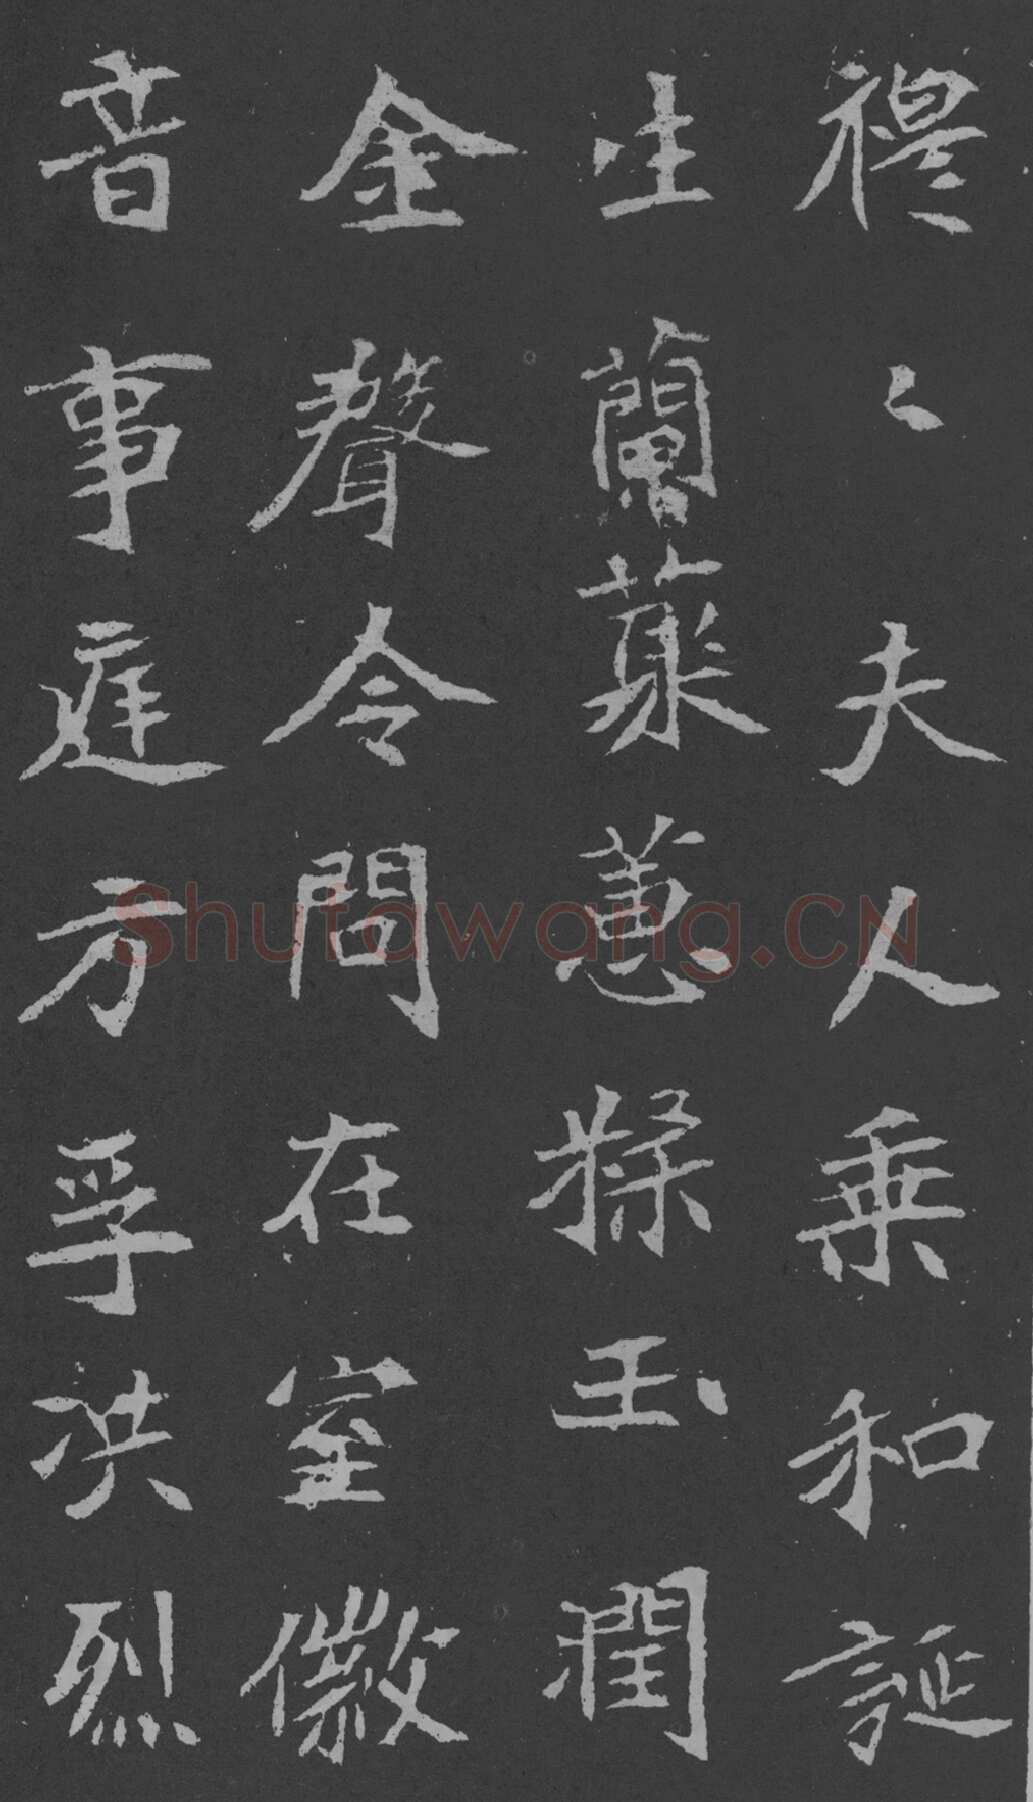 穆〻夫人乗和誕
生蘭蕤蕙糅玉潤
金聲令問在室徽
音事庭方孚洪烈
Shufawang.CN